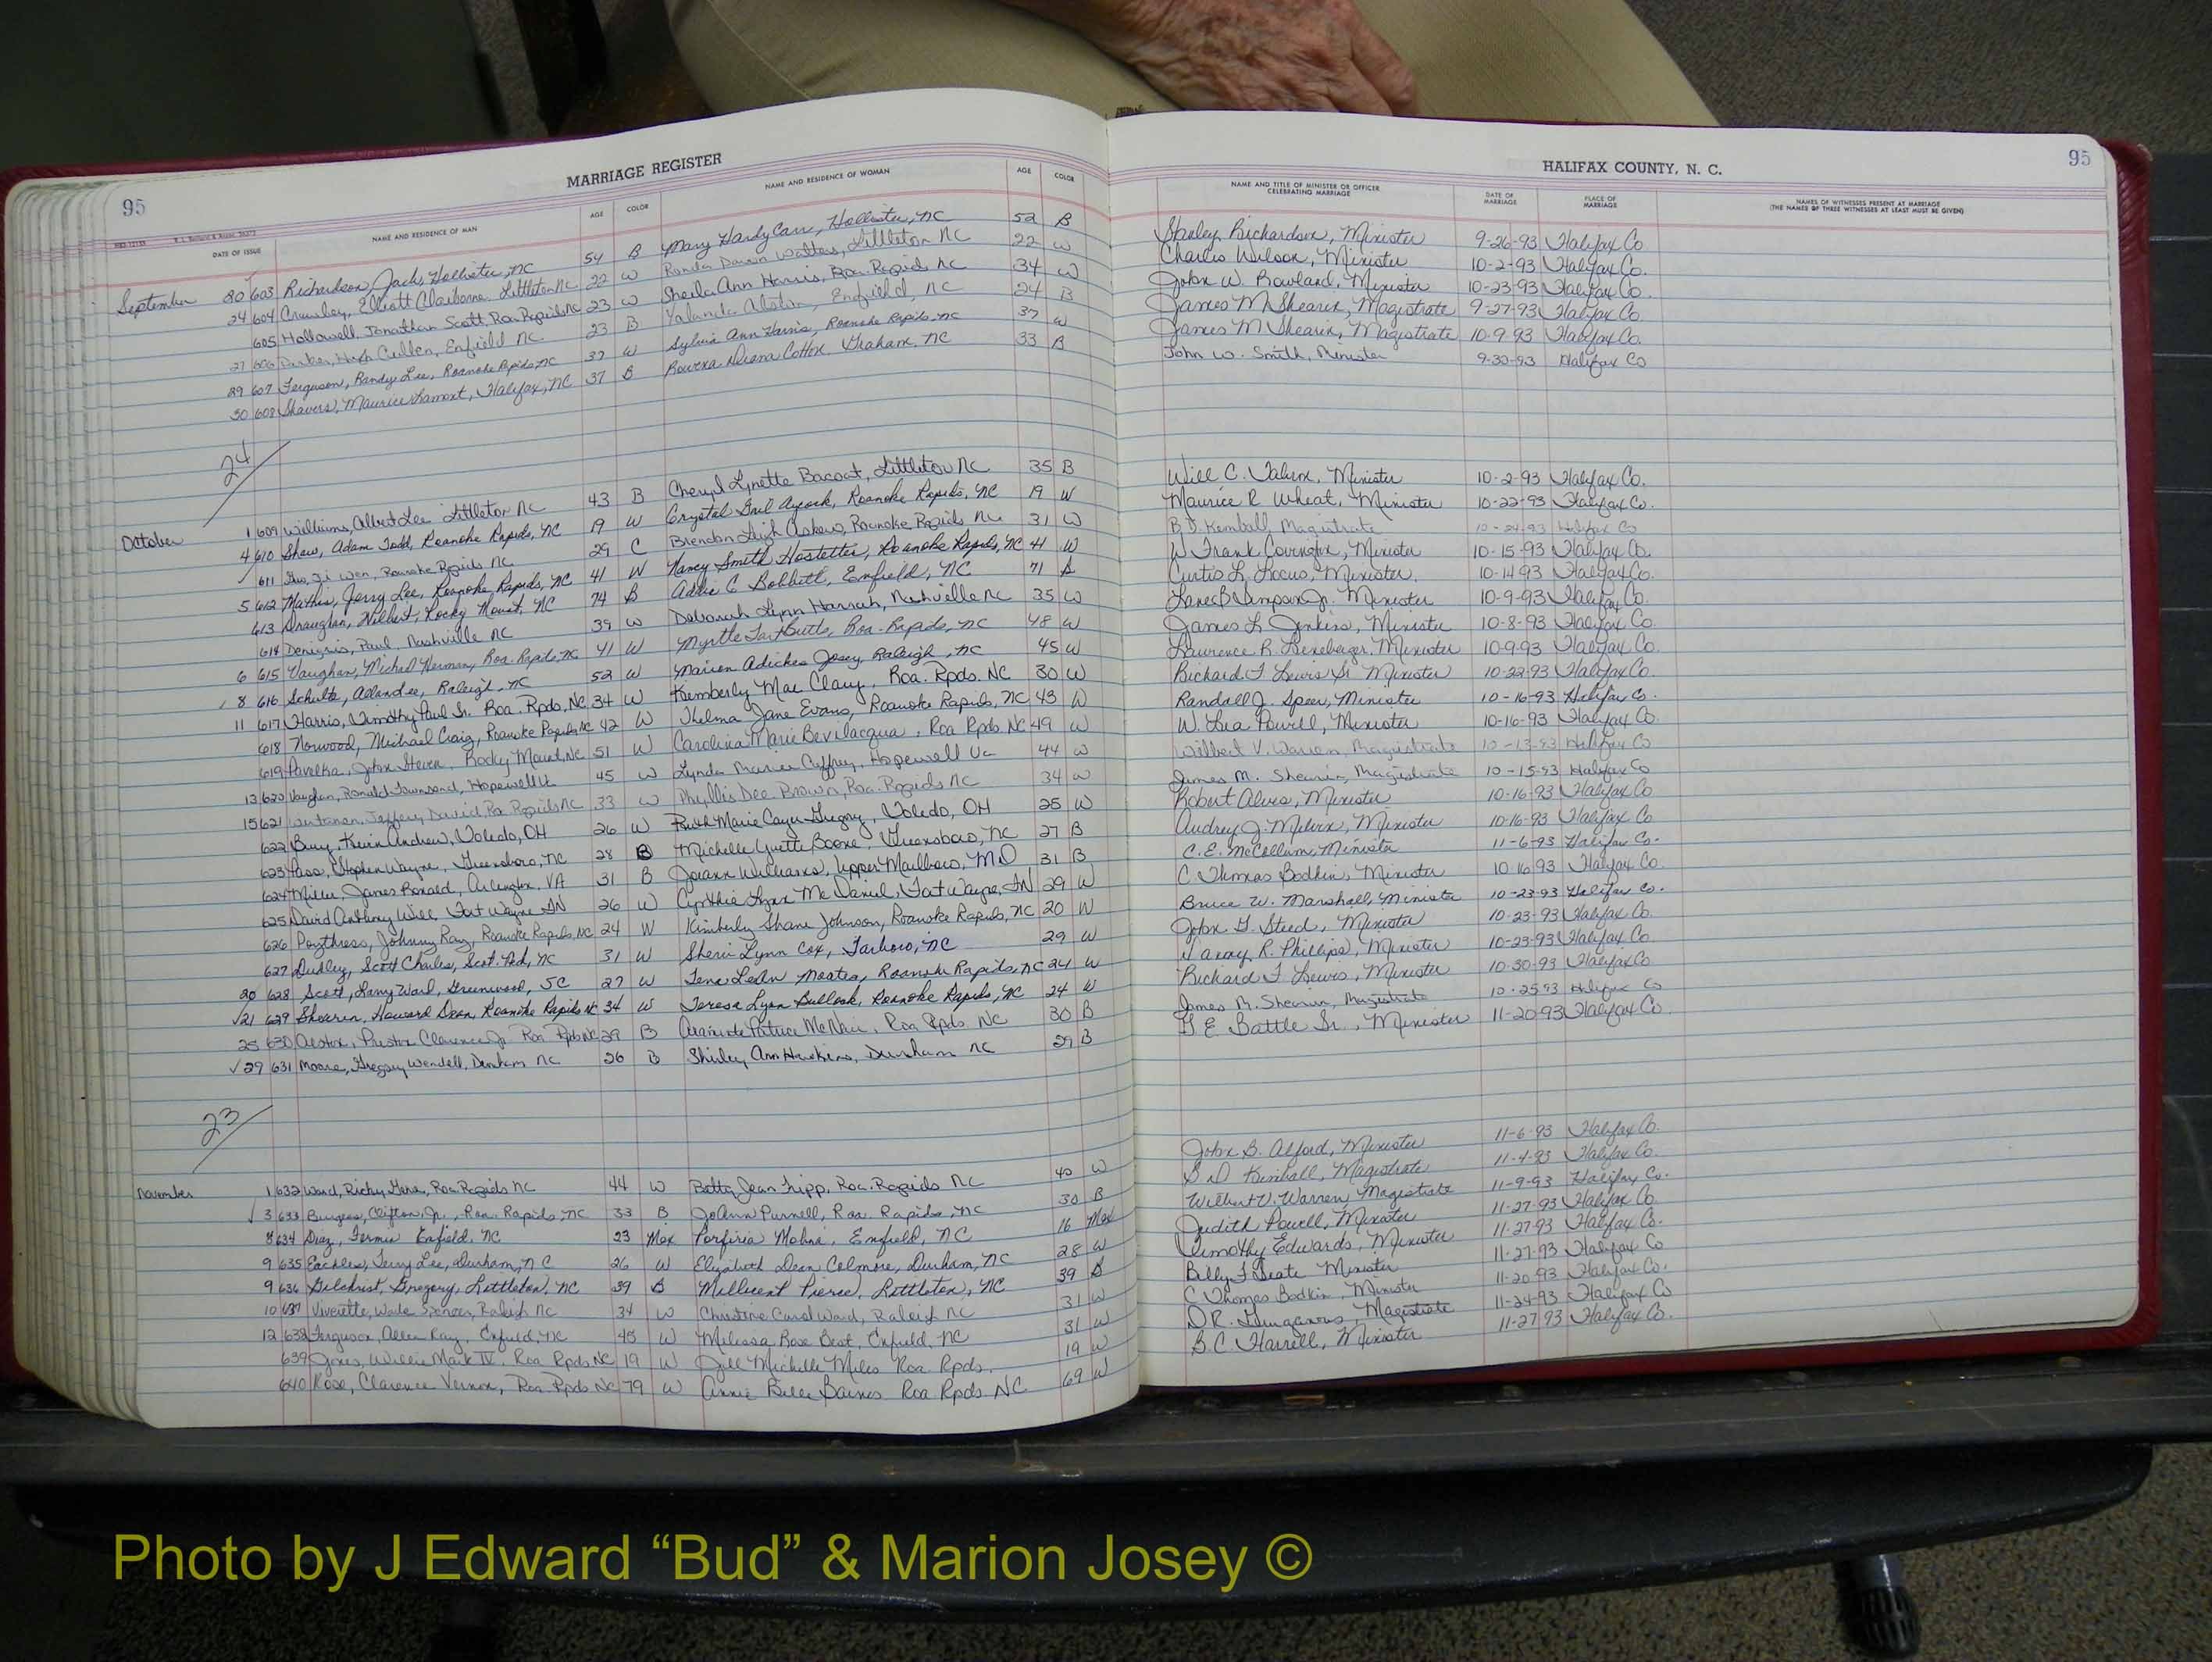 MARRIAGE REGISTER
95
DATE OF ISSUE NAME AND RESIDENCE OF MAN AGE COLOR NAME AND RESIDENCE OF WOMAN AGE COLOR
September 20 603 Richardson, Jack, Hollister, NC 54 B Mary Hardy Carr, Hollister, NC 52 B
24 604 Crawley, Elliott Claiborne, Littleton NC 22 W Ronda Dawn Walters, Littleton NC 22 W
605 Hollowell, Jonathan Scott, Roa Rapids NC 23 W Sheila Ann Harris, Roa. Rapids NC 34 W
27 606 Hugh Cullen, Enfield NC 23 B Yolanda Alston, Enfield, NC 24 B
29 607 Ferguson, Randy Lee, Roanoke Rapids, NC 37 W Sylvia Ann Harris, Roanoke Rapids, NC 37 W
30 608 Shavers, Maurice Lamont, Halifax, NC 37 B Rowena Cotton, Graham, NC 33 B
24
October 1 609 Williams, Albert Lee Littleton NC 43 B Cheryl Lynette Bacoat, Littleton NC 35 B
4 610 Shaw, Adam Todd, Roanoke Rapids, NC 19 W Crystal Gail Aycock, Roanoke Rapids, NC 19 W
611 Ji Wen, Roanoke Rapids NC 29 C Brendon Leigh Askew, Roanoke Rapids NC 31 W
5 612 Mathis, Jerry Lee, Roanoke Rapids, NC 41 W Nancy Smith Hostetter, Roanoke Rapids, NC 41 W
613 Draughn, Wilbert, Rocky Mount, NC 74 B Addie C Bobbitt, Enfield, NC 71 B
614 Denigris, Paul, Nashville NC 39 W Deborah Lynn Harrah, Nashville NC 35 W
6 615 Vaughan, Michael Herman, Roa. Rapids, NC 41 W Myrtle Butts, Roa. Rapids, NC 48 W
8 616 Schultz, Allan Lee, Raleigh, NC 52 W Marion Adickes Josey Raleigh, NC 45 W
11 617 Harris, Timothy Paul Sr. Roa. Rpds, NC 34 W Kimberly Mae Clary, Roa. Rpds. NC 30 W
618 Norwood, Michael Craig, Roanoke Rapids, NC 42 W Thelma Jane Evans, Roanoke Rapids, NC 43 W
619 Pavelka, John Steven, Rocky Mount, NC 51 W Carolina Marie Bevilacqua, Roa Rpds. NC 49 W
13 620 Vaughan, Ronald Townsend, Hopewell Va 45 W Lynda Marie Caffrey, Hopewell Va 44 W
15 621 Jeffery David, Roa Rapids NC 33 W Phyllis Dee Brown, Roa. Rapids NC 34 W
622 Bury, Kevin Andrew, Toledo, OH 26 W Ruth Marie Gregory, Toledo, OH 25 W
623 Pass, Stephen Wayne, Greensboro, NC 28 B Michelle Yvette Boone, Greensboro, NC 27 B
624 Miller, James Ronald, Arlington, VA 31 B Joeann Williams, Upper Marlboro, MD 31 B
625 David Anthony Will, Fort Wayne IN 26 W Cynthia Lynn Mc Daniel, Fort Wayne, IN 29 W
626 Poythress, Johnny Ray, Roanoke Rapids, NC 24 W Kimberly Shane Johnson, Roanoke Rapids, NC 20 W
627 Dudley, Scott Charles, Scot. Nck, NC 31 W Sheri Lynn Cox, Tarboro, NC 29 W
20 628 Scott, Larry Ward, Greenwood, SC 27 W Tena LeAn Roanoke Rapids, NC 24 W
21 629 Shearin, Howard Dean, Roanoke Rapids NC 34 W Teresa Lynn Bullock, Roanoke Rapids, NC 24 W
25 630 Alston, Preston Clarence Jr. Roa Rpds NC 29 B Patrice McNair, Roa Rpds. NC 30 B
29 631 Moore, Gregory Wendell, Durham NC 26 B Shirley Ann Hawkins, Durham NC 29 B
23
November 1 632 Ward, Ricky Gene, Roa. Rapids NC 44 W Betty Jean Tripp, Roa. Rapids NC 40 W
3 633 Burgess, Clifton, Jr., Roa. Rapids, NC 33 B JoAnn Purnell, Roa. Rapids, NC 30 B
8 634 Diaz, Fermin Enfield, NC 23 Mex Porfiria Molina, Enfield, NC 16 Mex
9 635 Eackles, Terry Lee, Durham, NC 26 W Elizabeth Dean Colmore, Durham, NC 28 W
9 636 Gilchrist, Gregory, Littleton, NC 39 B Millicent Pierce, Littleton, NC 39 B
10 637 Viverette, Wade Spencer, Raleigh NC 34 W Christine Carol Ward, Raleigh NC 31 W
12 638 Ferguson, Allen Ray, Enfield, NC 45 W Melissa Rose Best, Enfield, NC 31 W
639 Jones, Willie Mark IV, Roa Rpds NC 19 W Jill Michelle Miles Roa. Rpds. 19 W
640 Rose, Clarence Vernon, Roa Rpds NC 79 W Annie Belle Baines Roa Rpds. NC 69 W
HALIFAX COUNTY, N. C.
95
NAME AND TITLE OF MINISTER OR OFFICER CELEBRATING MARRIAGE DATE OF MARRIAGE PLACE OF MARRIAGE NAMES OF WITNESSES PRESENT AT MARRIAGE (THE NAMES OF THREE WITNESSES AT LEAST MUST BE GIVEN)
Stanley Richardson, Minister 9-26-93 Halifax Co
Charles Wilson, Minister 10-2-93 Halifax Co.
John W. Rowland, Minister 10-23-93 Halifax Co.
James M Shearin, Magistrate 9-27-93 Halifax Co.
James M Shearin, Magistrate 10-9-93 Halifax Co.
John W. Smith, Minister 9-30-93 Halifax Co
Will C. Minister 10-2-93 Halifax Co.
Maurice R Wheat, Minister 10-22-93 Halifax Co.
B.D. Kimball, Magistrate 10-24-93 Halifax Co
W Frank Covington, Minister 10-15-93 Halifax Co.
Curtis L Locus, Minister. 10-14-93 Halifax Co.
Simpson Jr. Minister 10-9-93 Halifax Co.
James L. Jenkins, Minister 10-8-93 Halifax Co.
Lawrence R. Minister 10-9-93 Halifax Co.
Richard F Lewis Sr Minister 10-22-93 Halifax Co.
Randall J. Speer, Minister 10-16-93 Halifax Co.
W. Powell, Minister 10-16-93 Halifax Co.
Wilbert V. Warren, Magistrate 10-13-93 Halifax Co
James M. Shearin, Magistrate 10-15-93 Halifax Co
Robert Alves, Minister 10-16-93 Halifax Co
Audrey J. Melvin, Minister 10-16-93 Halifax Co
C.E. McCollum, Minister 11-6-93 Halifax Co.
C Thomas Bodkin, Minister 10-16-93 Halifax Co.
Bruce W. Marshall, Minister 10-23-93 Halifax Co.
John G. Steed, Minister 10-23-93 Halifax Co.
R. Phillips, Minister 10-23-93 Halifax Co
Richard F Lewis, Minister 10-30-93 Halifax Co
James M. Shearin, Magistrate 10-25-93 Halifax Co
E. Battle Sr., Minister 11-20-93 Halifax Co.
John B. Alford, Minister 11-6-93 Halifax Co.
B D Kimball, Magistrate 11-4-93 Halifax Co.
Wilbert V. Warren Magistrate 11-9-93 Halifax Co.
Judith Powell, Minister 11-27-93 Halifax Co.
Timothy Edwards, Minister 11-27-93 Halifax Co.
Billy F Minister 11-27-93 Halifax Co
C Thomas Bodkin, Minister 11-20-93 Halifax Co.
D.R. Magistrate 11-24-93 Halifax Co
B.C. Harrell, Minister 11-27-93 Halifax Co.
Photo by J Edward “Bud” & Marion Josey ©